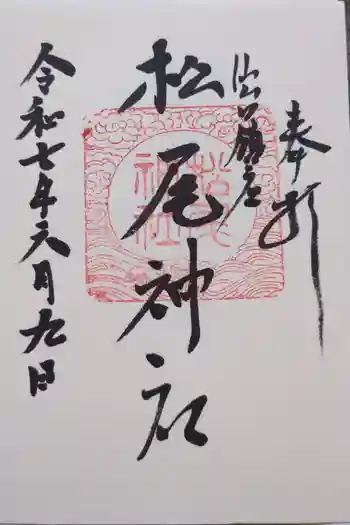 奉拝
松尾神社
松尾神社
令和七年六月九日